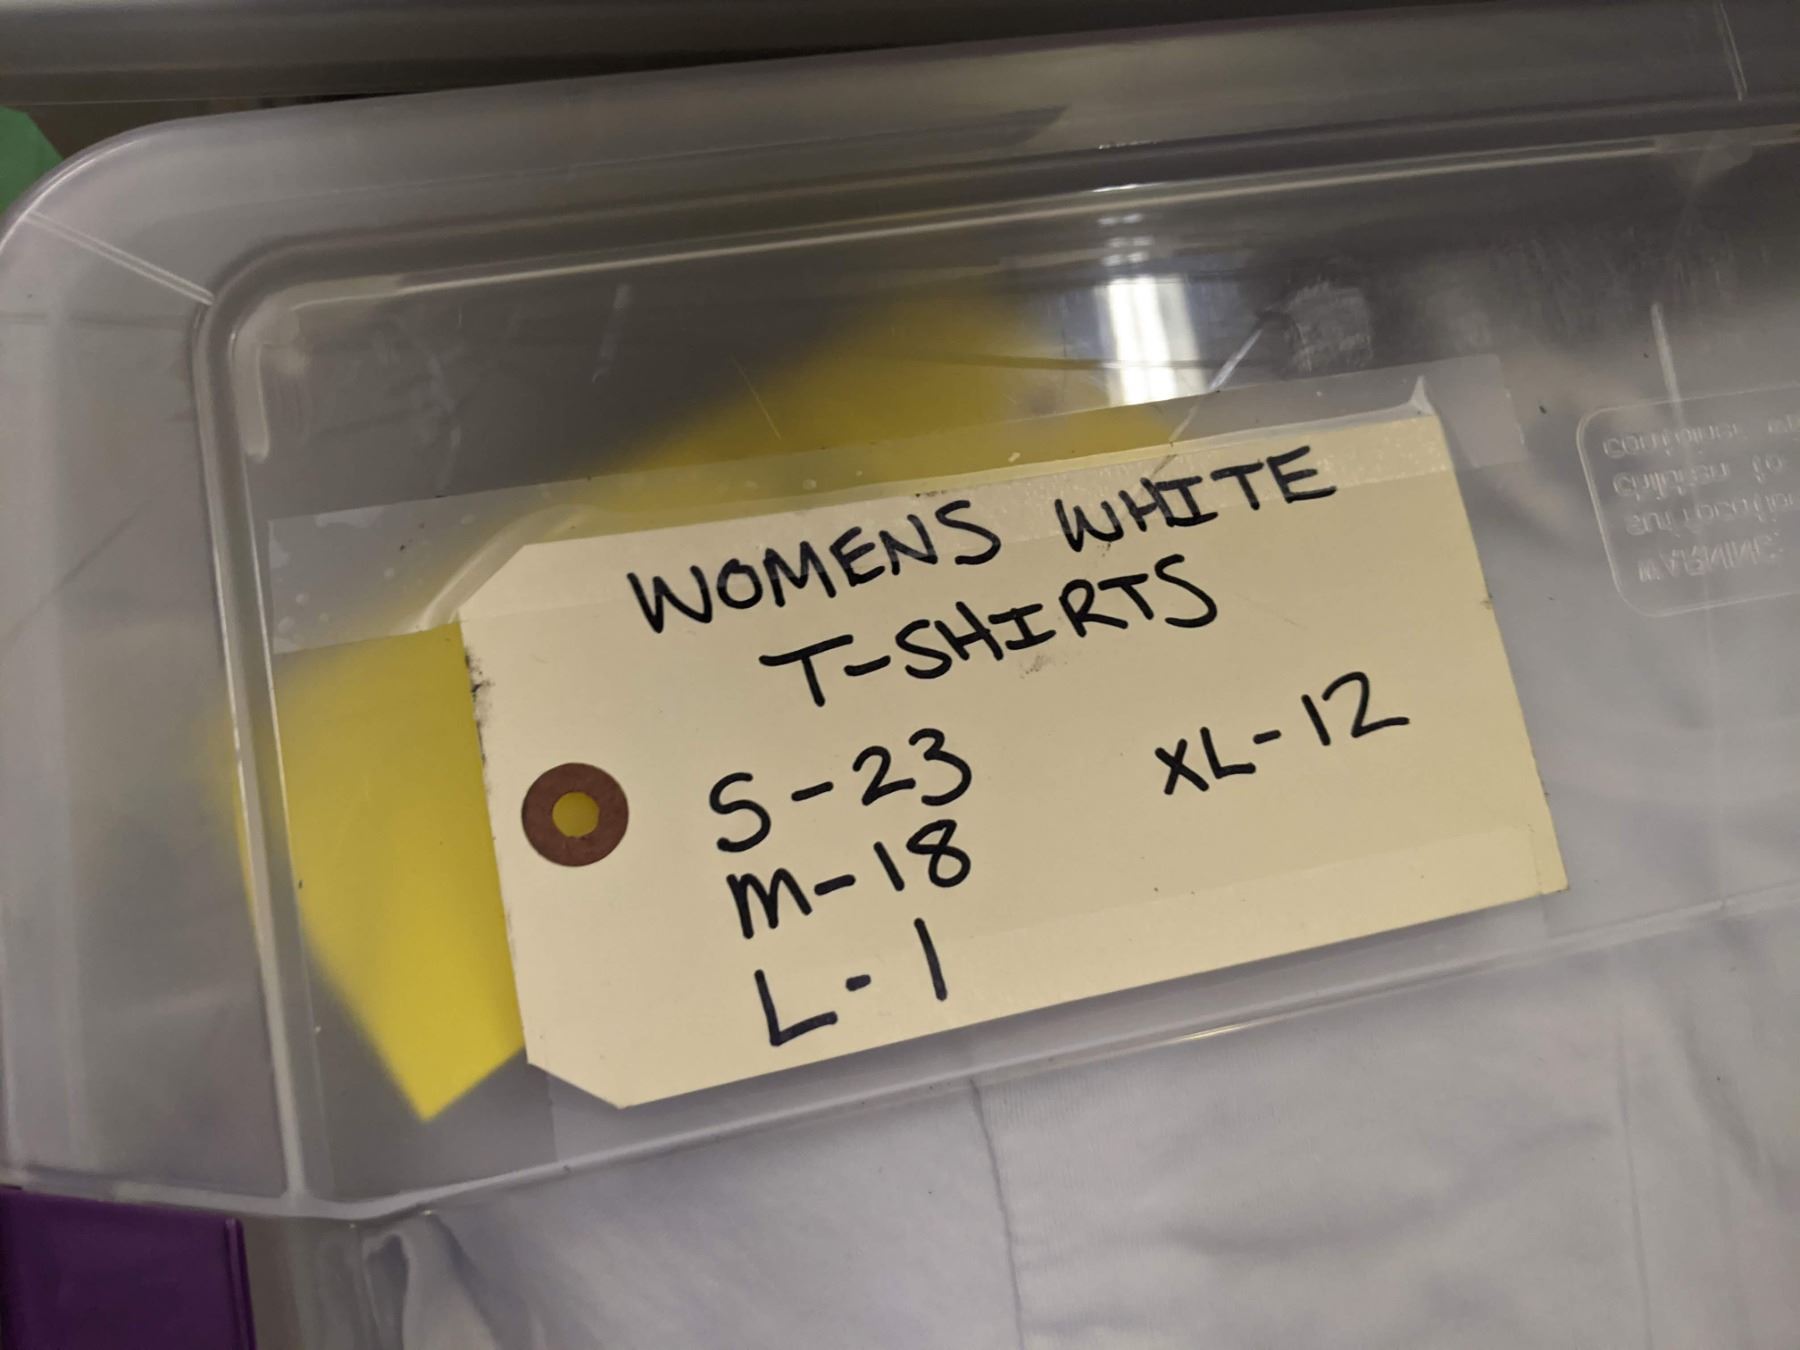 WOMENS WHITE
T-SHIRTS
S-23 XL-12
M-18
L-1